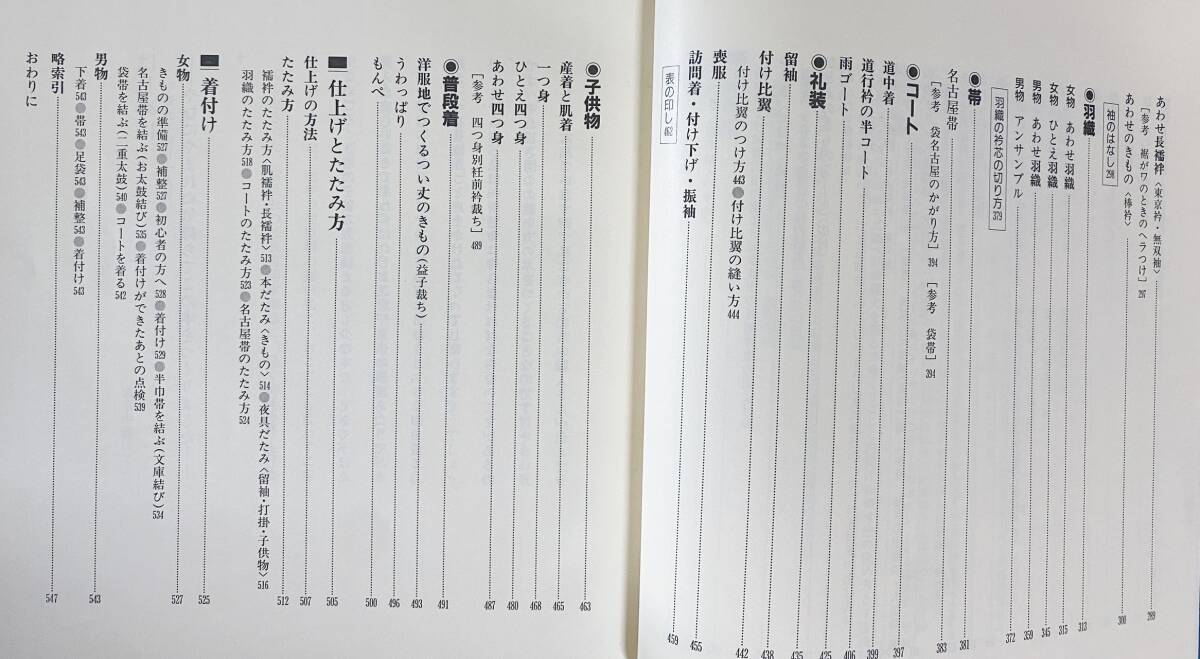 あわせ長襦袢〈東京衿・無双袖〉 289
[参考 裾がワのときのヘラつけ] 297
あわせのきもの〈棒衿〉 300
袖のはなし 298
◉羽織 313
女物 あわせ羽織 315
女物 ひとえ羽織 345
男物 あわせ羽織 359
男物 アンサンブル 372
羽織の衿芯の切り方 379
◉帯 381
名古屋帯 383
[参考 袋名古屋のかがり方] 394 [参考 袋帯] 394
◉コート 397
道中着 399
道行衿の半コート 406
雨ゴート 425
◉礼装 435
留袖 438
付け比翼 442
付け比翼のつけ方 443●付け比翼の縫い方 444
喪服 455
訪問着・付け下げ・振袖 459
表の印し 462
◉子供物 463
産着と肌着 465
一つ身 468
ひとえ四つ身 480
あわせ四つ身 487
[参考 四つ身別衽前衿裁ち] 489
◉普段着 491
洋服地でつくるつい丈のきもの(益子裁ち) 493
うわっぱり 496
もんぺ 500
■仕上げとたたみ方 505
仕上げの方法 507
たたみ方 512
襦袢のたたみ方〈肌襦袢・長襦袢〉513●本だたみ〈きもの〉514●夜具だたみ〈留袖・打掛・子供物〉516
羽織のたたみ方 518●コートのたたみ方 523●名古屋帯のたたみ方 524
■着付け 525
女物 527
きものの準備 527●補整 527●初心者の方へ 528●着付け 529●半巾帯を結ぶ(文庫結び) 534
名古屋帯を結ぶ(お太鼓結び) 535●着付けができたあとの点検 539
袋帯を結ぶ(二重太鼓) 540●コートを着る 542
男物 543
下着 543●帯 543●足袋 543●補整 543●着付け 543
略索引 547
おわりに